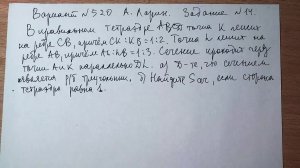 Вариант №520 А. Ларин. Задание №14.
В правильном тетраэдре ABCD точка K лежит
на ребре CB, причём CK:KB=1:2. Точка L лежит на
ребре AB, причём AL:LB=1:3. Сечение проходит через
точки A и K параллельно DL. а) Д-те, что сечением
является р/б треугольник. б) Найдите Sсеч, если сторона
тетраэдра равна 1.